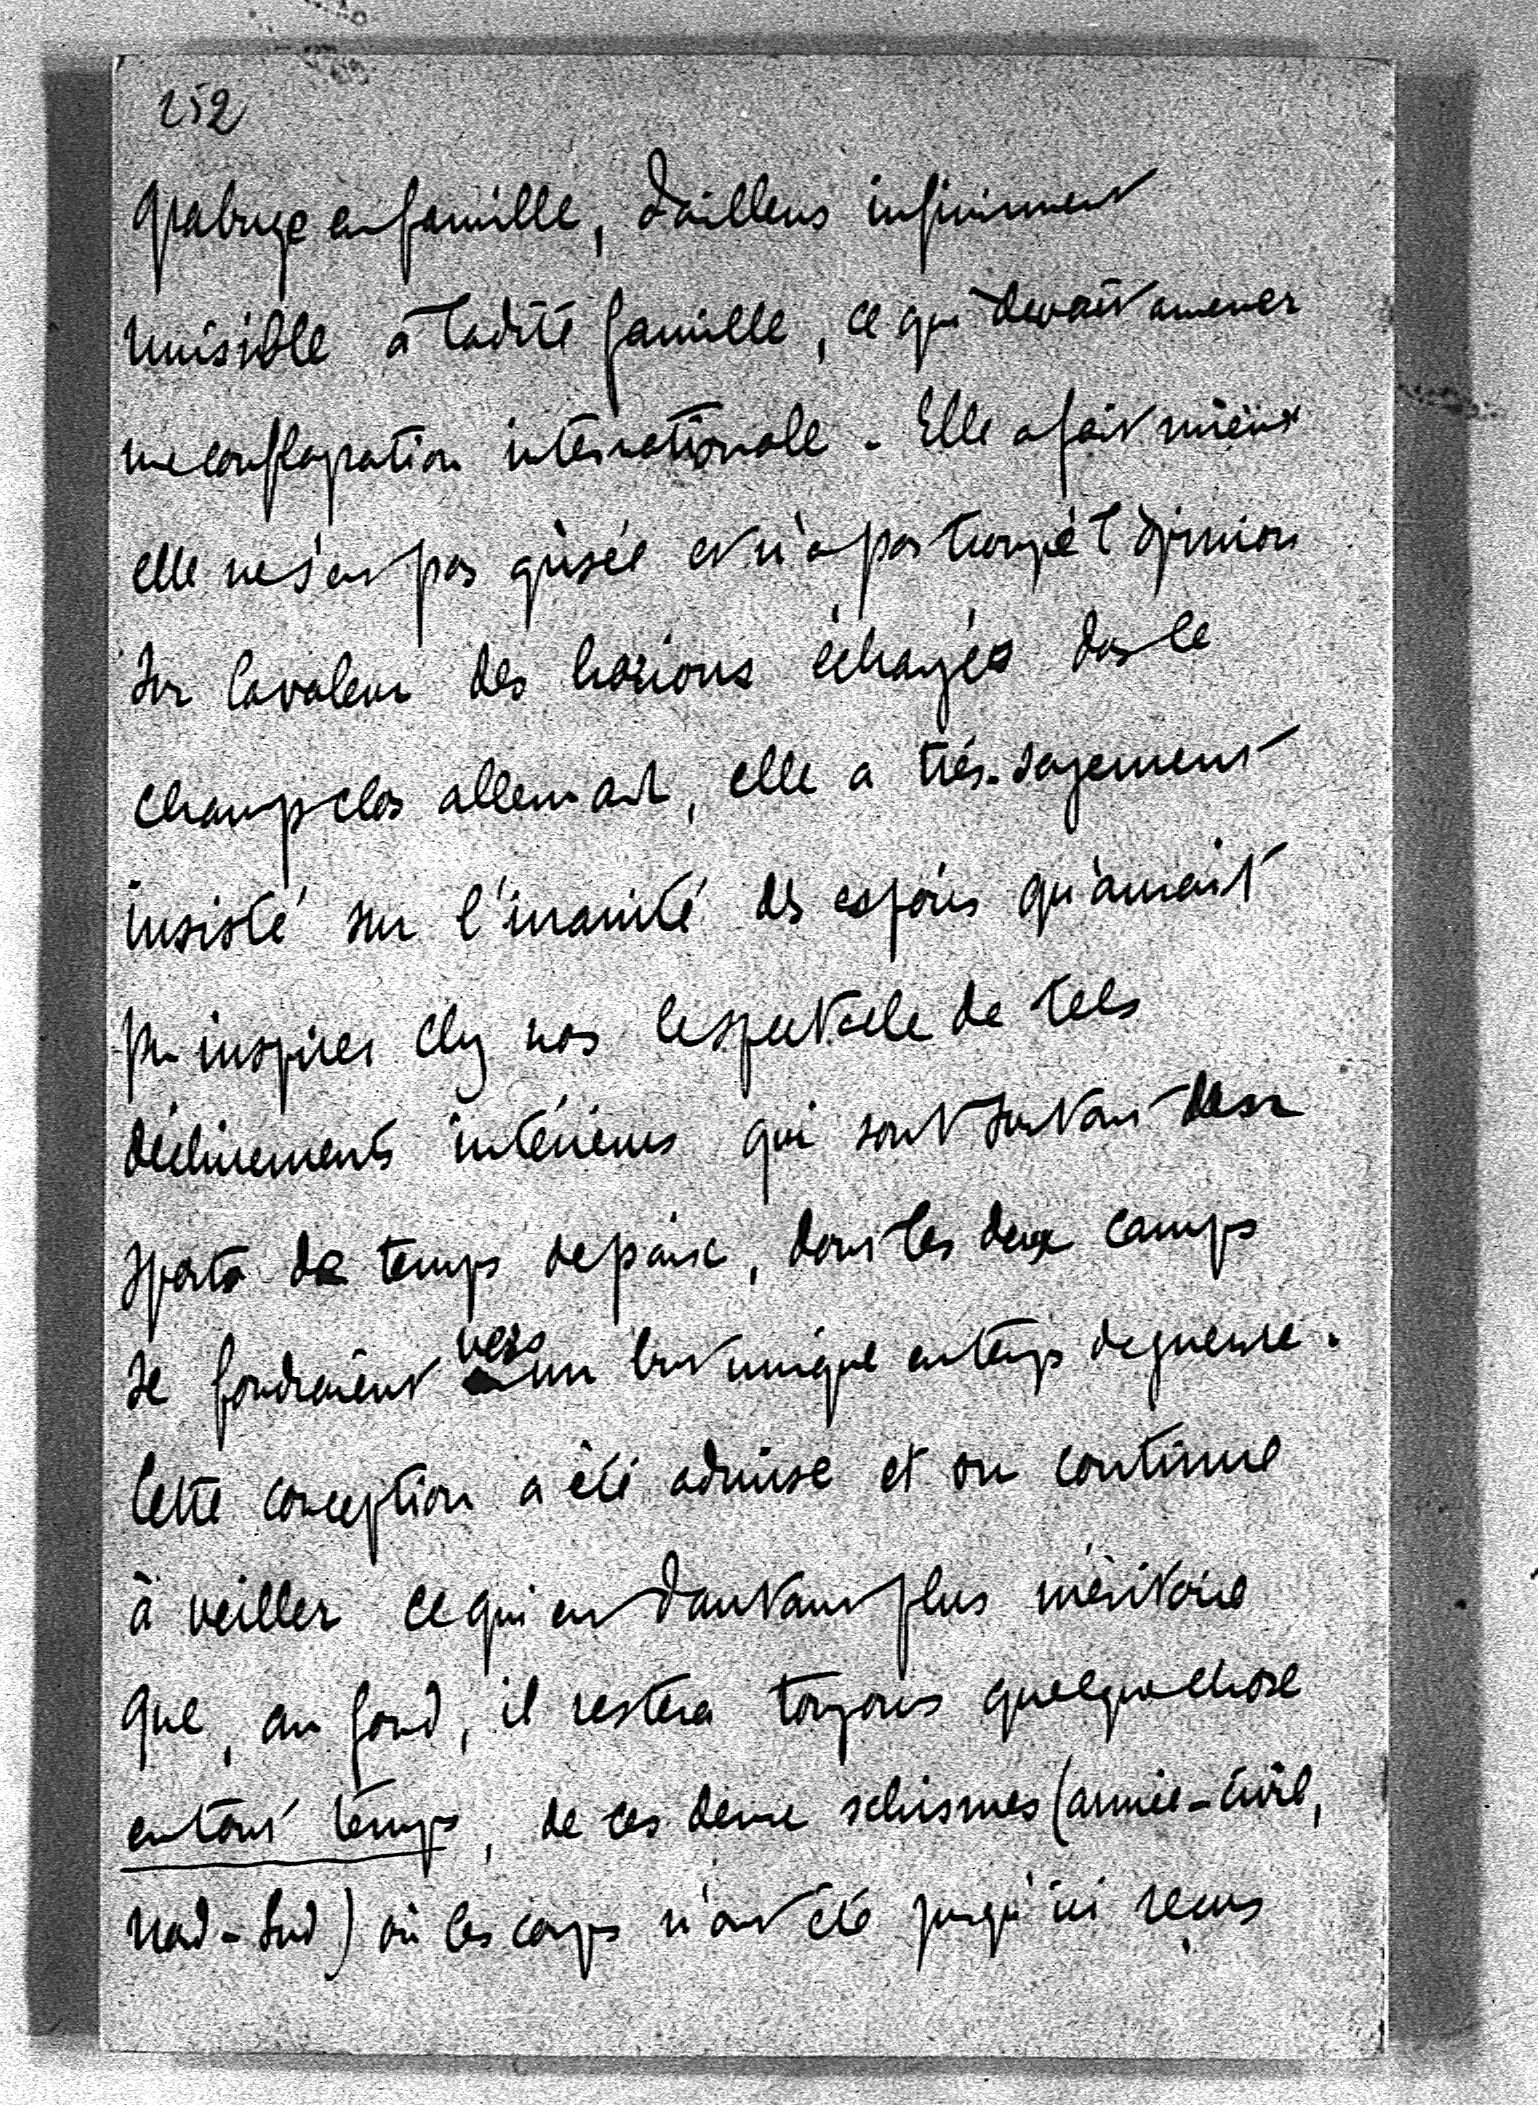 252
grabuge en famille, d'ailleurs infiniment
nuisible à ladite famille, ce qui devait amener
une conflagration internationale. Elle a fait mieux
elle ne s'est pas grisée et n'a pas trompé l'opinion
sur la valeur des horions échangés dans le
champ clos allemand, elle a très-sagement
insisté sur l'inanité des espoirs qu'aurait
pu inspirer chez nous le spectacle de tels
déchirements intérieurs qui sont surtout des
sports de temps de paix, dont les deux camps
se fondraient vers un but unique en temps de guerre.
Cette conception a été admise et on continue
à veiller ce qui est d'autant plus méritoire
que, au fond, il restera toujours quelque chose
en tout temps, de ces deux schismes (armée-civil,
Nord-Sud) où les coups n'ont été jusqu'ici reçus